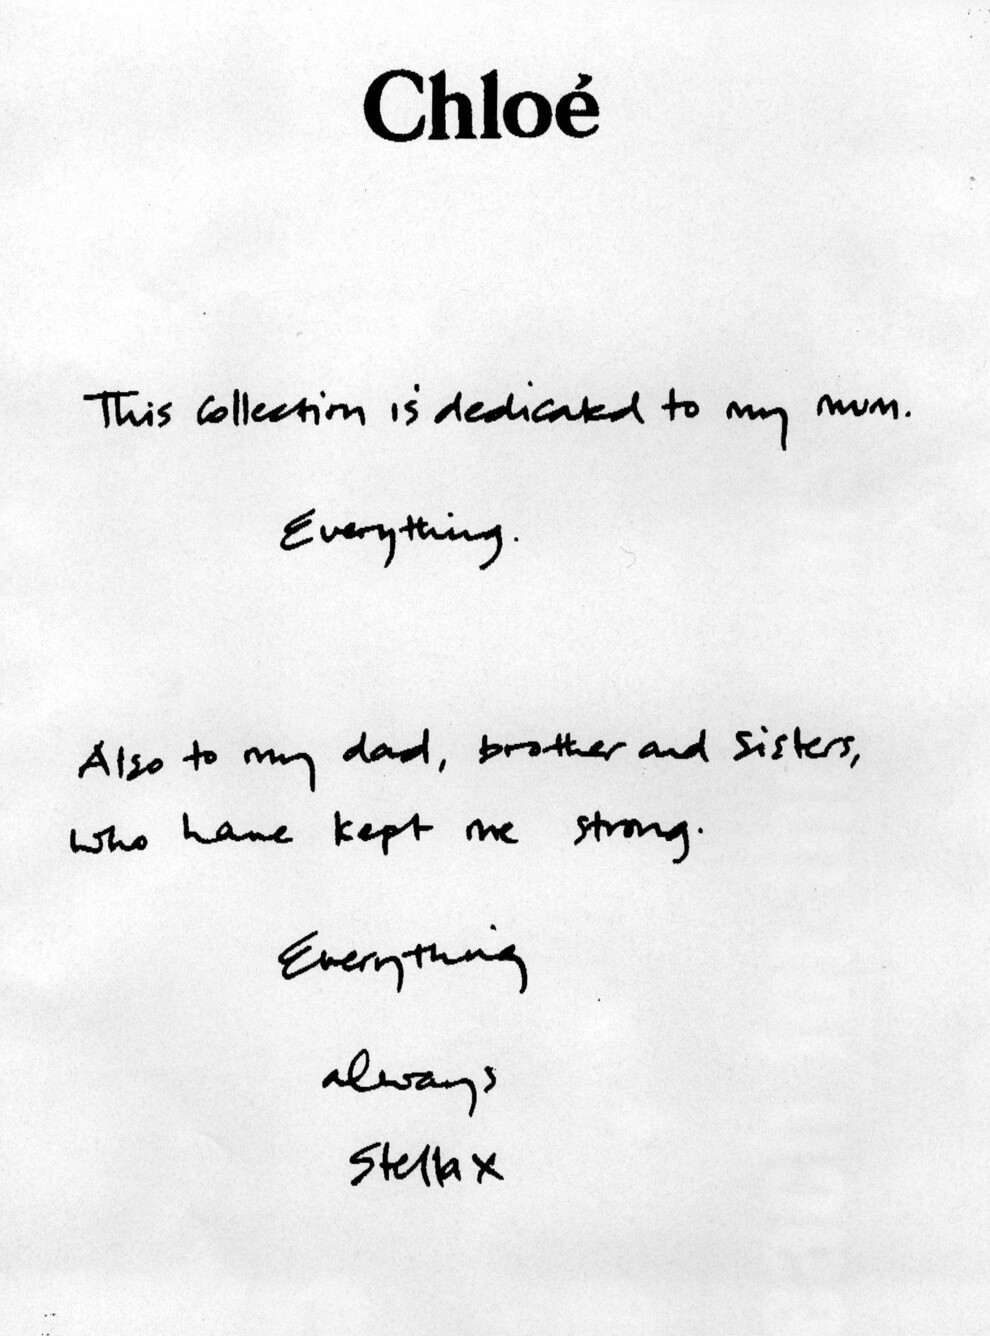 Chloé
This collection is dedicated to my mum.
Everything.
Also to my dad, brother and sisters,
who have kept me strong.
Everything
always
Stella x